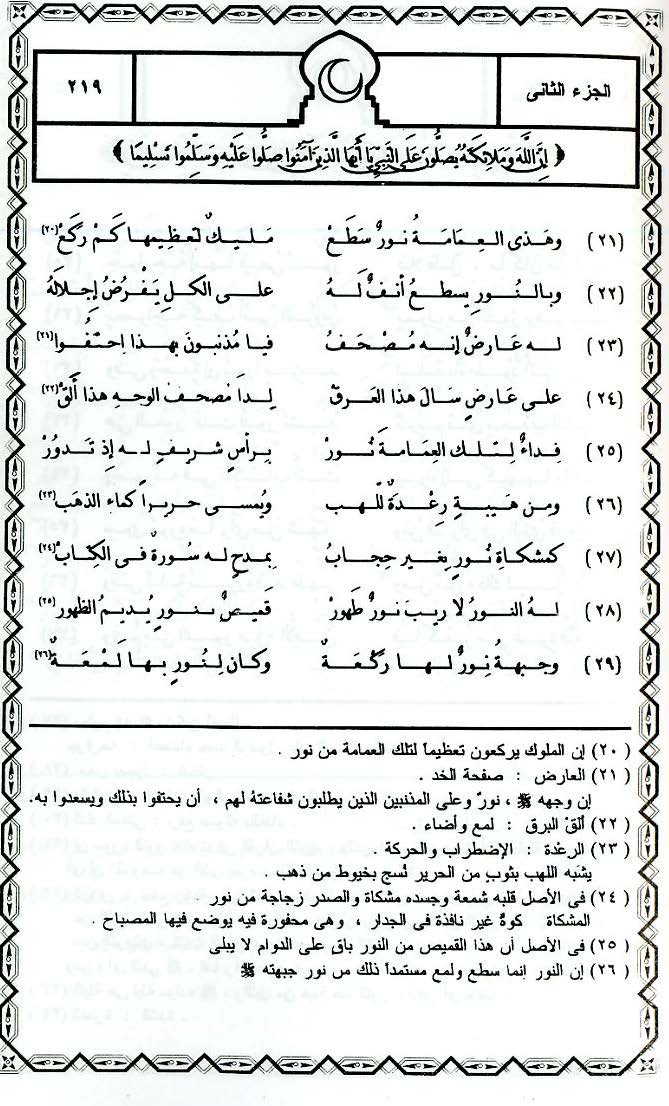 الجزء الثانى
٢١٩
﴿ إِنَّ اللَّهَ وَمَلَائِكَتَهُ يُصَلُّونَ عَلَى النَّبِيِّ يَا أَيُّهَا الَّذِينَ آمَنُوا صَلُّوا عَلَيْهِ وَسَلِّمُوا تَسْلِيمًا ﴾
(٢١) وهَذى العِمَامَةُ نورٌ سَطَعْ مَليكٌ لتَعظِيمها كَمْ رَكَعْ(٢٠)
(٢٢) وبالنُّورِ يسطعُ أنفٌ لَهُ على الكلِ يَفْرُضُ إجلالَهُ
(٢٣) له عَارضٌ إنه مُصْحَفُ فيا مُذنبونَ بهذا احتَفُوا(٢١)
(٢٤) على عَارضٍ سَالَ هذا العَرقْ لِدَا مُصحفِ الوجهِ هذا أَلَقْ(٢٢)
(٢٥) فِداءٌ لِتلكَ العِمَامةِ نُورْ بِرأسٍ شريفٍ له إذ تَدورْ
(٢٦) ومن هَيبةٍ رِعْدةٌ للّهب ويُمسى حريراً كماء الذهَب(٢٣)
(٢٧) كمشكاةِ نُورٍ بغيرِ حِجابْ بمدحٍ له سُورةٌ فى الكِتابْ(٢٤)
(٢٨) لهُ النورُ لا ريبَ نورٌ طَهورْ قَميصٌ بنورٍ يُديمُ الظهور(٢٥)
(٢٩) وجبهةُ نورٌ لها رَكْعَةٌ وكان لِنُورٍ بها لَمْعَةٌ(٢٦)
(٢٠) إن الملوك يركعون تعظيماً لتلك العمامة من نور .
(٢١) العارض : صفحة الخد .
إن وجهه ﷺ ، نورٌ وعلى المذنبين الذين يطلبون شفاعته لهم ، أن يحتفوا بذلك ويسعدوا به.
(٢٢) ألقَ البرق : لمع وأضاء .
(٢٣) الرعْدة : الإضطراب والحركة .
يشبه اللهب بثوب من الحرير نُسج بخيوط من ذهب .
(٢٤) فى الأصل قلبه شمعة وجسده مشكاة والصدر زجاجة من نور .
المشكاة . كوةٌ غير نافذة فى الجدار ، وهى محفورة فيه يوضع فيها المصباح .
(٢٥) فى الأصل أن هذا القميص من النور باق على الدوام لا يبلى
(٢٦) إن النور إنما سطع ولمع مستمداً ذلك من نور جبهته ﷺ